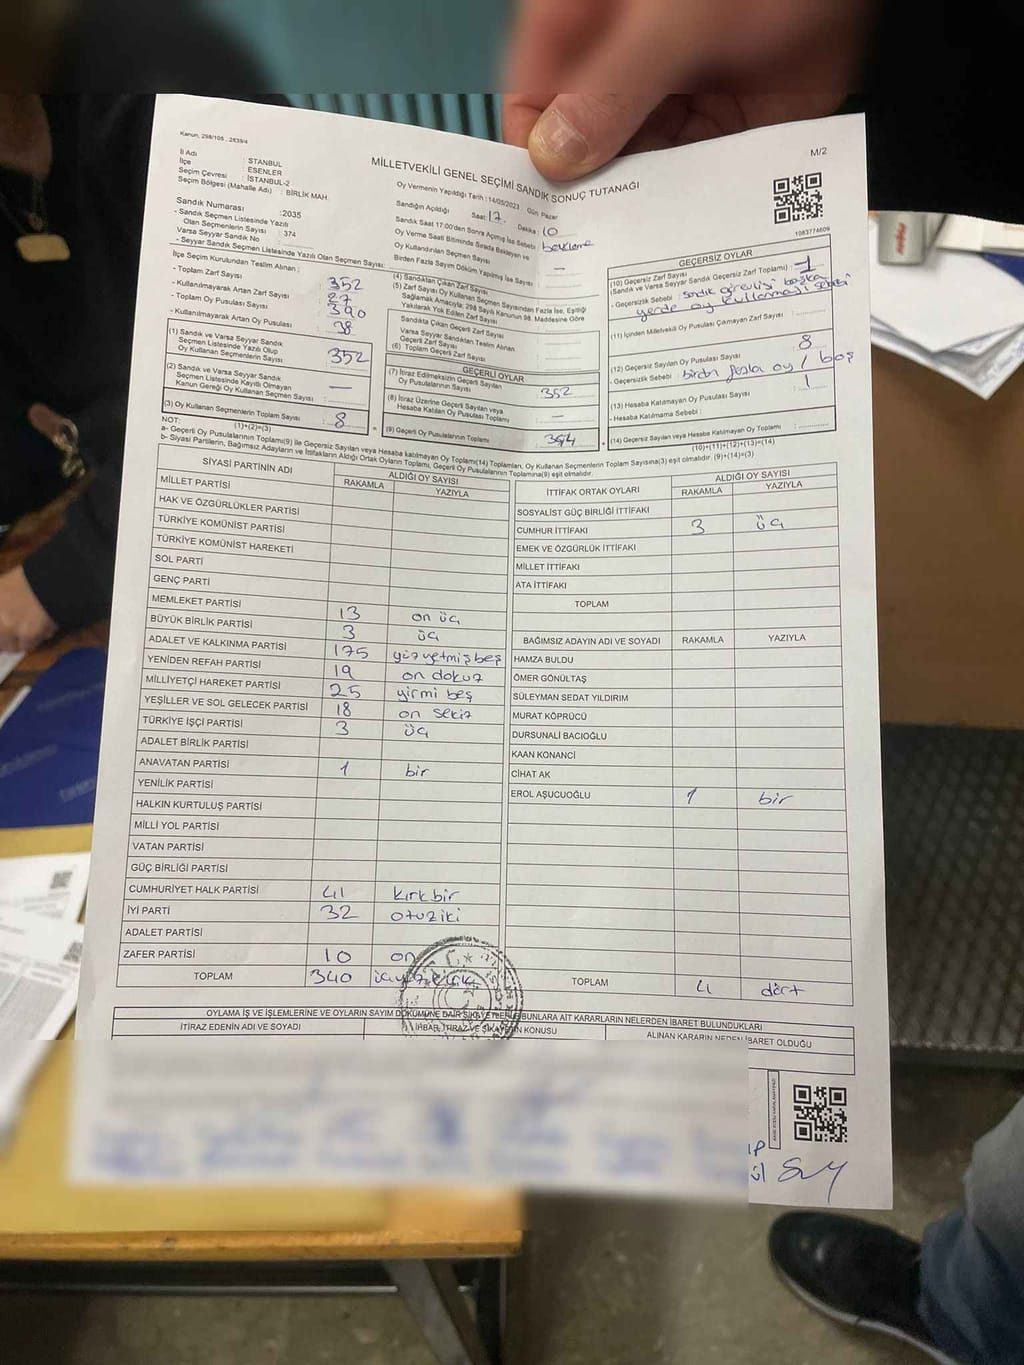 Kanun, 298/105 , 2839/4
M/2
MİLLETVEKİLİ GENEL SEÇİMİ SANDIK SONUÇ TUTANAĞI
İl Adı : STANBUL
İlçe : ESENLER
Seçim Çevresi : İSTANBUL-2
Seçim Bölgesi (Mahalle Adı) : BİRLİK MAH.
Sandık Numarası :2035
- Sandık Seçmen Listesinde Yazılı
Olan Seçmenlerin Sayısı : 374
Varsa Seyyar Sandık No
- Seyyar Sandık Seçmen Listesinde Yazılı Olan Seçmen Sayısı:
Oy Vermenin Yapıldığı Tarih : 14/05/2023 Gün Pazar
Sandığın Açıldığı Saat: 17. Dakika : 10
Sandık Saat 17:00'den Sonra Açılmış İse Sebebi : bekleme
Oy Verme Saati Bitiminde Sırada Bekleyen ve
Oy Kullandırılan Seçmen Sayısı : —
Birden Fazla Sayım Döküm Yapılmış İse Sayısı :
1083774609
İlçe Seçim Kurulundan Teslim Alınan :
- Toplam Zarf Sayısı : 352
- Kullanılmayarak Artan Zarf Sayısı : 27
- Toplam Oy Pusulası Sayısı : 390
- Kullanılmayarak Artan Oy Pusulası : 38
(1) Sandık ve Varsa Seyyar Sandık
Seçmen Listesinde Yazılı Olup
Oy Kullanan Seçmenlerin Sayısı : 352
(2) Sandık ve Varsa Seyyar Sandık
Seçmen Listesinde Kayıtlı Olmayan
Kanun Gereği Oy Kullanan Seçmen Sayısı : —
(3) Oy Kullanan Seçmenlerin Toplam Sayısı : 8
(1)+(2)=(3)
(4) Sandıktan Çıkan Zarf Sayısı
(5) Zarf Sayısı Oy Kullanan Seçmen Sayısından Fazla İse, Eşitliği
Sağlamak Amacıyla; 298 Sayılı Kanunun 98. Maddesine Göre
Yakılarak Yok Edilen Zarf Sayısı
Sandıkta Çıkan Geçerli Zarf Sayısı
Varsa Seyyar Sandıktan Teslim Alınan
Geçerli Zarf Sayısı
(6) Toplam Geçerli Zarf Sayısı
GEÇERLİ OYLAR
(7) İtiraz Edilmeksizin Geçerli Sayılan
Oy Pusulalarının Sayısı : 352
(8) İtiraz Üzerine Geçerli Sayılan veya
Hesaba Katılan Oy Pusulası Toplamı : —
(9) Geçerli Oy Pusulalarının Toplamı
GEÇERSİZ OYLAR
(10) Geçersiz Zarf Sayısı
(Sandık ve Varsa Seyyar Sandık Geçersiz Zarf Toplamı) : 1
- Geçersizlik Sebebi : sandık görevlisi başka
yerde oy kullanmalı sebebi
(11) İçinden Milletvekili Oy Pusulası Çıkmayan Zarf Sayısı
(12) Geçersiz Sayılan Oy Pusulası Sayısı : 8
- Geçersizlik Sebebi : birden fazla oy / boş
(13) Hesaba Katılmayan Oy Pusulası Sayısı : 1
- Hesaba Katılmama Sebebi :
(14) Geçersiz Sayılan veya Hesaba Katılmayan Oy Toplamı
(10)+(11)+(12)+(13)=(14)
NOT:
a- Geçerli Oy Pusulalarının Toplamı(9) İle Geçersiz Sayılan veya Hesaba katılmayan Oy Toplamı(14) Toplamları, Oy Kullanan Seçmenlerin Toplam Sayısına(3) eşit olmalıdır. (9)+(14)=(3)
b- Siyasi Partilerin, Bağımsız Adayların ve İttifakların Aldığı Ortak Oyların Toplamı, Geçerli Oy Pusulalarının Toplamına(9) eşit olmalıdır.
SİYASİ PARTİNİN ADI ALDIĞI OY SAYISI
RAKAMLA YAZIYLA
MİLLET PARTİSİ
HAK VE ÖZGÜRLÜKLER PARTİSİ
TÜRKİYE KOMÜNİST PARTİSİ
TÜRKİYE KOMÜNİST HAREKETİ
SOL PARTİ
GENÇ PARTİ
MEMLEKET PARTİSİ 13 on üç
BÜYÜK BİRLİK PARTİSİ 3 üç
ADALET VE KALKINMA PARTİSİ 175 yüzyetmişbeş
YENİDEN REFAH PARTİSİ 19 on dokuz
MİLLİYETÇİ HAREKET PARTİSİ 25 yirmi beş
YEŞİLLER VE SOL GELECEK PARTİSİ 18 on sekiz
TÜRKİYE İŞÇİ PARTİSİ 3 üç
ADALET BİRLİK PARTİSİ
ANAVATAN PARTİSİ 1 bir
YENİLİK PARTİSİ
HALKIN KURTULUŞ PARTİSİ
MİLLİ YOL PARTİSİ
VATAN PARTİSİ
GÜÇ BİRLİĞİ PARTİSİ
CUMHURİYET HALK PARTİSİ 41 kırkbir
İYİ PARTİ 32 otuziki
ADALET PARTİSİ
ZAFER PARTİSİ 10 on
TOPLAM 340 üçyüzkırk
İTTİFAK ORTAK OYLARI ALDIĞI OY SAYISI
RAKAMLA YAZIYLA
SOSYALİST GÜÇ BİRLİĞİ İTTİFAKI
CUMHUR İTTİFAKI 3 üç
EMEK VE ÖZGÜRLÜK İTTİFAKI
MİLLET İTTİFAKI
ATA İTTİFAKI
TOPLAM
BAĞIMSIZ ADAYIN ADI VE SOYADI RAKAMLA YAZIYLA
HAMZA BULDU
ÖMER GÖNÜLTAŞ
SÜLEYMAN SEDAT YILDIRIM
MURAT KÖPRÜCÜ
DURSUNALİ BACIOĞLU
KAAN KONANCİ
CİHAT AK
EROL AŞUCUOĞLU 1 bir
TOPLAM 4 dört
OYLAMA İŞ VE İŞLEMLERİNE VE OYLARIN SAYIM DÖKÜMÜNE DAİR ŞİKAYETLERLE BUNLARA AİT KARARLARIN NELERDEN İBARET BULUNDUKLARI
İTİRAZ EDENİN ADI VE SOYADI İHBAR, İTİRAZ VE ŞİKAYETİN KONUSU ALINAN KARARIN NEDEN İBARET OLDUĞU